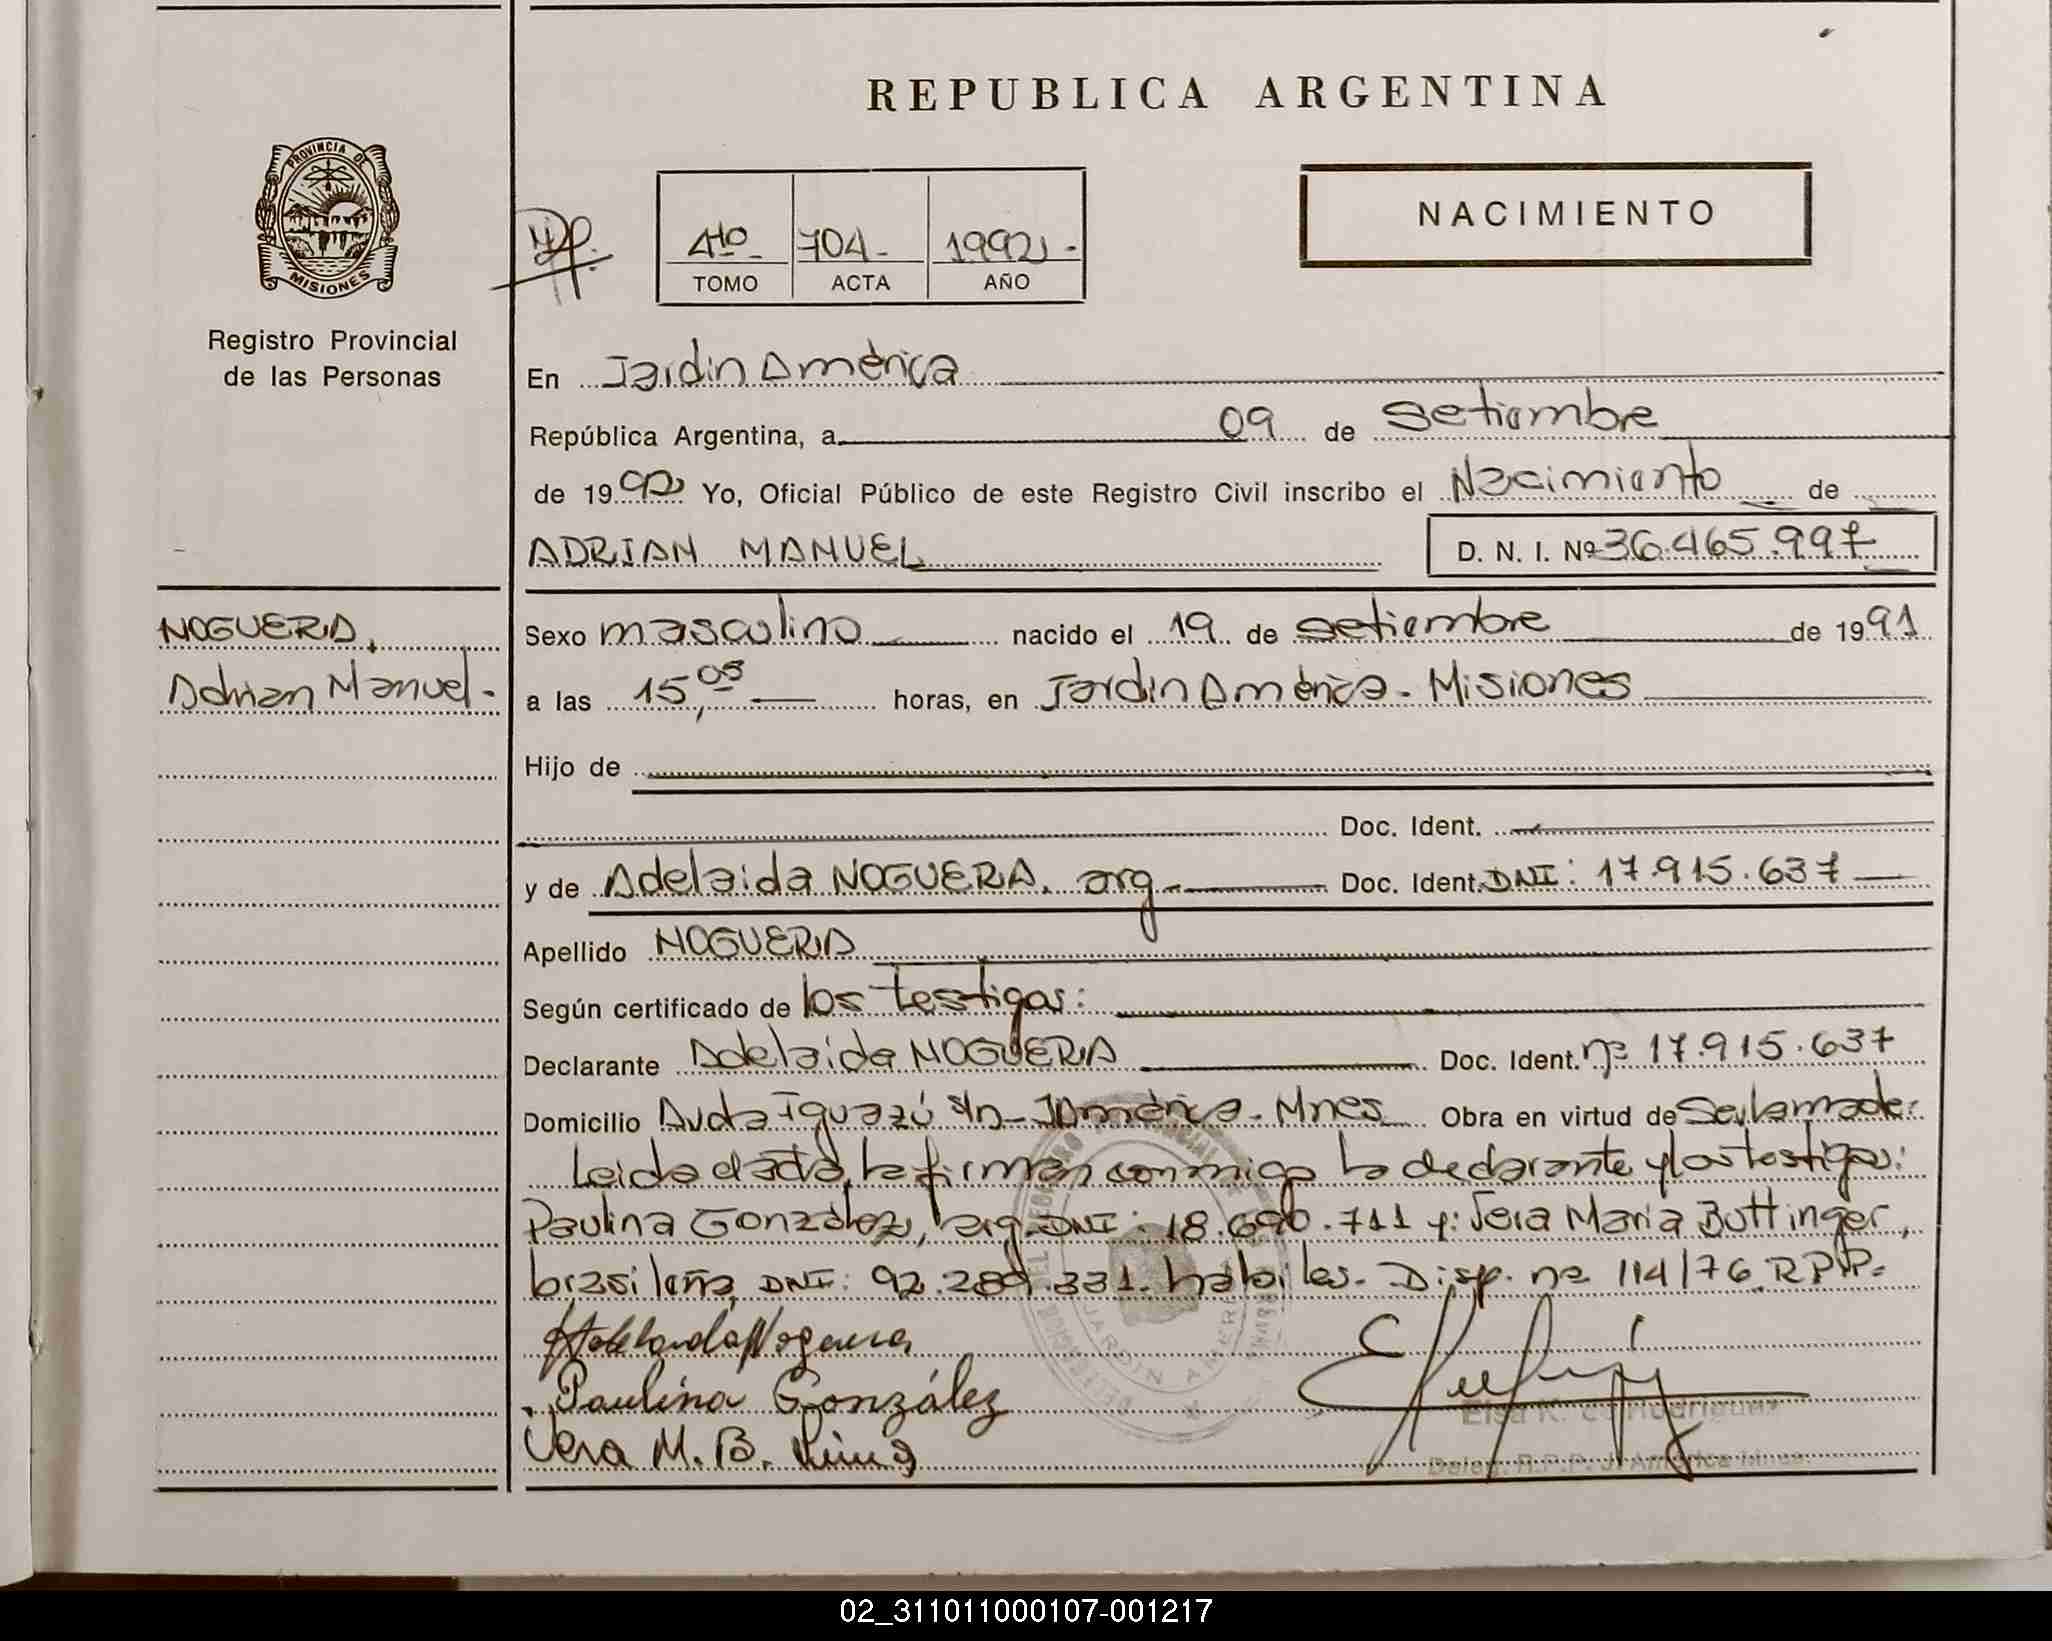 REPUBLICA ARGENTINA
PROVINCIA DE
MISIONES
NACIMIENTO
4to 704- 1992-
TOMO ACTA AÑO
Registro Provincial
de las Personas
En Jardin América
República Argentina, a 09 de Setiembre
de 1992 Yo, Oficial Público de este Registro Civil inscribo el Nacimiento de
ADRIAN MANUEL D. N. I. Nº 36.465.997
NOGUERA,
Adrian Manuel-
Sexo masculino nacido el 19 de setiembre de 1991
a las 15,05 horas, en Jardin América- Misiones
Hijo de
Doc. Ident.
y de Adelaida NOGUERA, arg. Doc. Ident. DNI: 17.915.637
Apellido NOGUERA
Según certificado de los testigos:
Declarante Adelaida NOGUERA Doc. Ident. nº 17.915.637
Domicilio Avda Iguazú s/n- J América- Mnes Obra en virtud de Ser la madre:
Leida el acta, la firman conmigo la declarante y los testigos:
Paulina González, arg. DNI: 18.690.711 y: Vera Maria Buttinger,
brasileña, DNI: 92.289.331. habiles- Disp. nº 114/76 R.P.P.-
Adelaida Noguera
Paulina González
Vera M. B.
JARDIN AMERICA
02_311011000107-001217